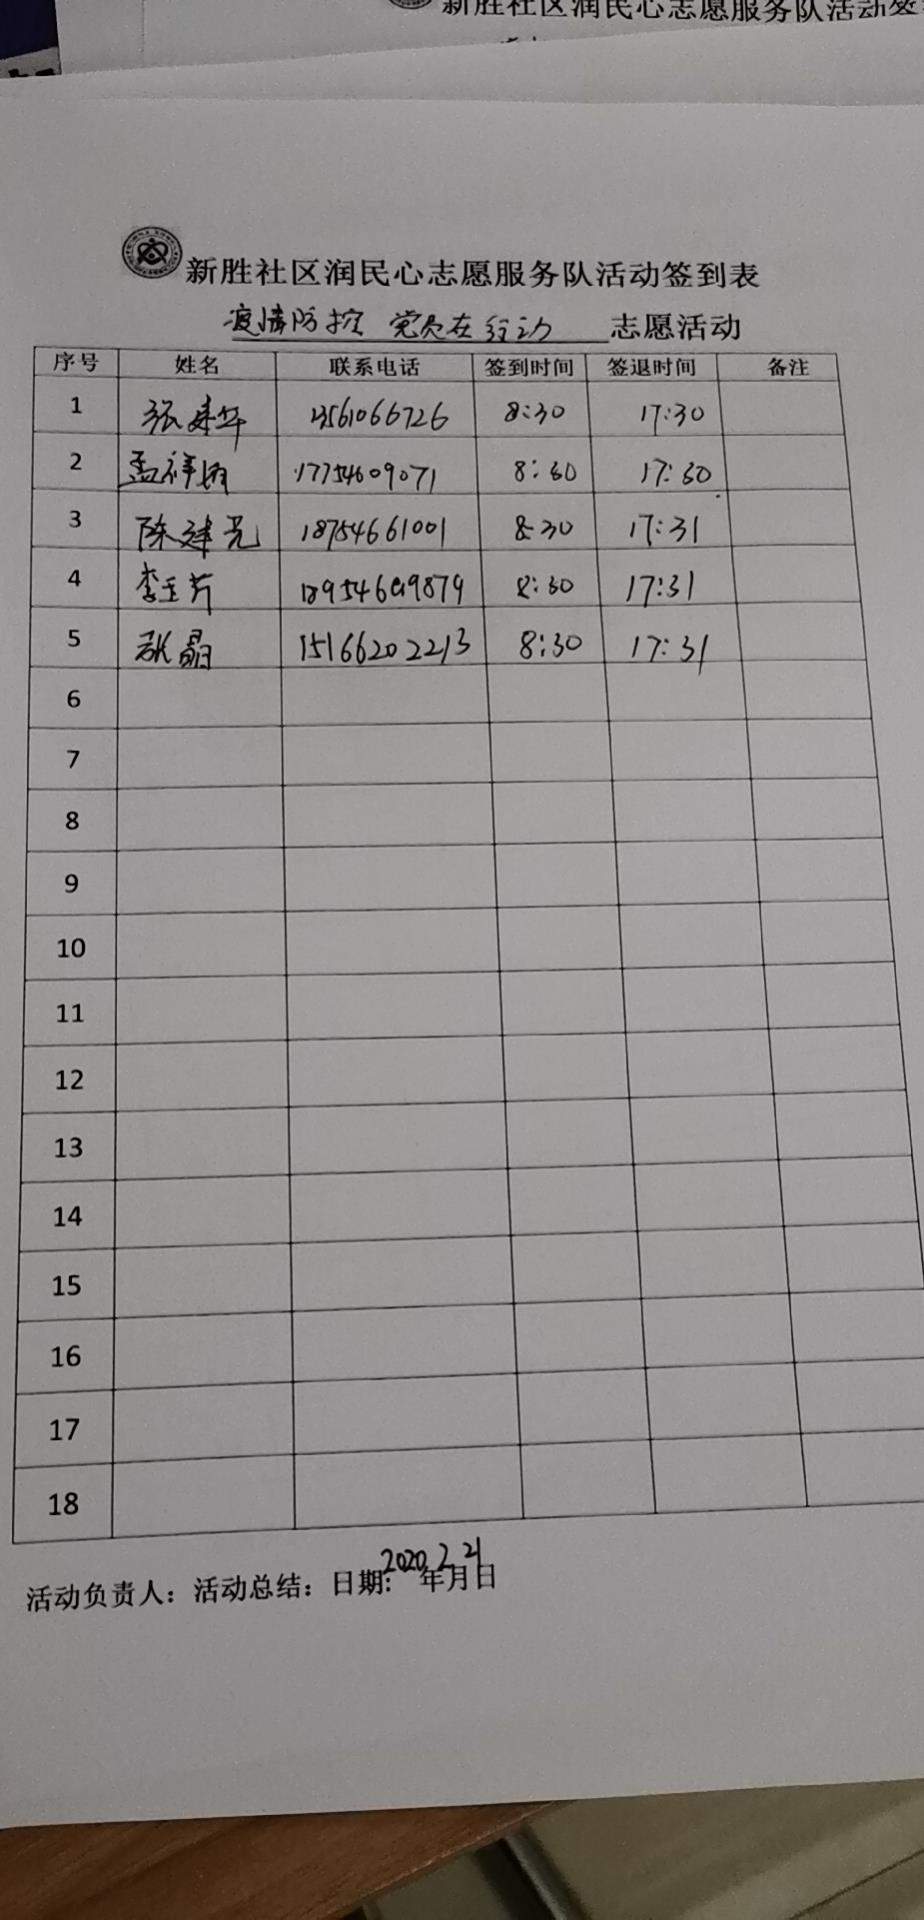 新胜社区润民心志愿服务队活动签
新胜社区润民心志愿服务队活动签到表
疫情防控 党员在行动 志愿活动
序号 姓名 联系电话 签到时间 签退时间 备注
1 张建华 13561066726 8:30 17:30
2 孟祥 17754609071 8:30 17:30
3 陈建光 18754661001 8:30 17:31
4 李玉芳 8:30 17:31
5 张晶 15166202213 8:30 17:31
6
7
8
9
10
11
12
13
14
15
16
17
18
活动负责人：活动总结：日期：2020年2月21日